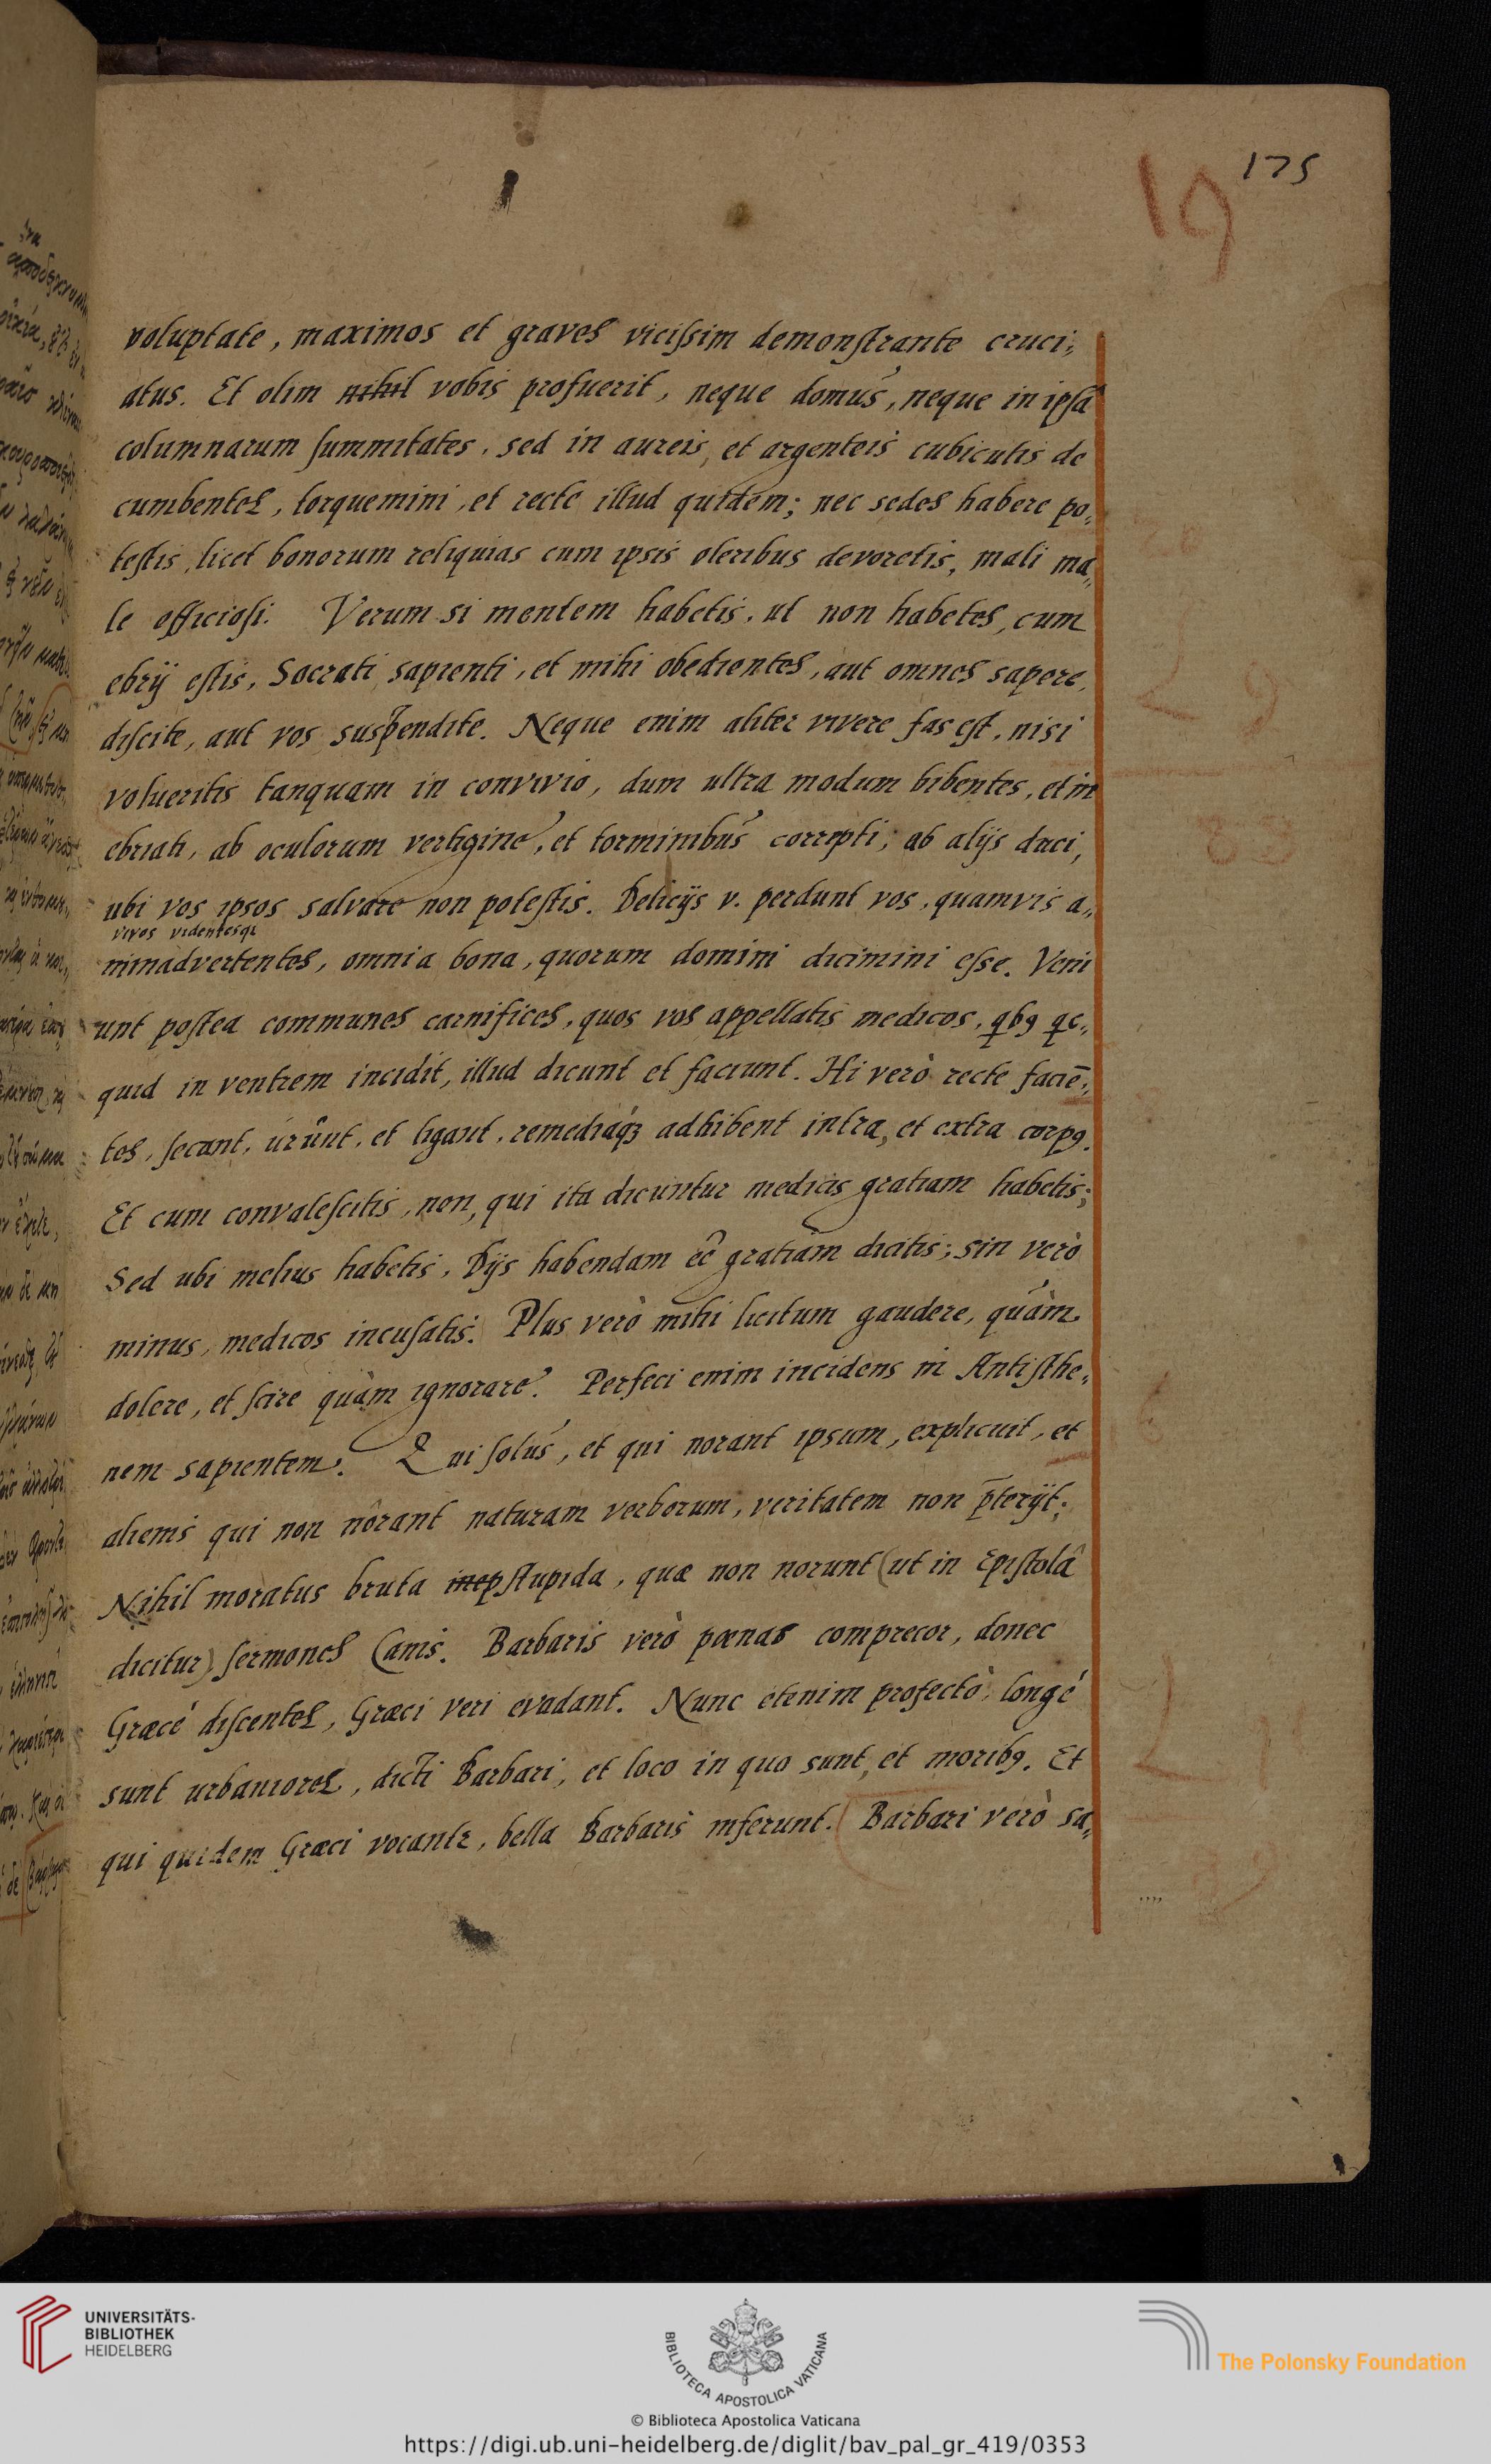 175
19
voluptate, maximos et graves vicissim demonstrante cruci„
atus. Et olim nihil vobis profuerit, neque domus, neque in ipsa
columnarum summitates, sed in aureis, et argenteis cubiculis de
cumbentes, torquemini, et recte illud quidem; nec sedes habere po„
testis, licet bonorum reliquias cum ipsis oleribus devoretis, mali ma„
le officiosi. Verum si mentem habetis, ut non habetes, cum
ebrij estis, Socrati sapienti, et mihi obedientes, aut omnes sapere
discite, aut vos suspendite. Neque enim aliter vivere fas est, nisi
volueritis tanquam in convivio, dum ultra modum bibentes, et in
ebriati, ab oculorum vertigine, et torminibus correpti, ab alijs duci,
ubi vos ipsos salvare non potestis. Delicijs v. perdunt vos, quamvis a„
vivos videntesq
nimadvertentes, omnia bona, quorum domini dicimini esse. Veni
unt postea communes carnifices, quos vos appellatis medicos, qbꝫ qc„
quid in ventrem incidit, illud dicunt et faciunt. Hi verò recte faciē„
tes, secant, urunt, et ligant, remediaqꝫ adhibent intra, et extra corpꝰ.
Et cum convalescitis, non, qui ita dicuntur medicis gratiam habetis;
Sed ubi melius habetis, Dijs habendam eê gratiam dicitis; sin verò
minus, medicos incusatis. Plus verò mihi licitum gaudere, quàm
dolere, et scire quàm ignorare. Perfeci enim incidens in Antisthe„
nem sapientem. Qui solus, et qui norant ipsum, explicuit, et
alienis qui non nôrant naturam verborum, veritatem non p̄terijt.
Nihil moratus bruta inep stupida, quæ non norunt (ut in Epistolâ
dicitur) sermones Canis. Barbaris verò pœnas comprecor, donec
Græcé discentes, Græci veri evadant. Nunc etenim profectò, longé
sunt urbaniores, dicti Barbari, et loco in quo sunt, et moribꝰ. Et
qui quidem Græci vocantr, bella Barbaris inferunt. Barbari verò sa„
UNIVERSITÄTS-
BIBLIOTHEK
HEIDELBERG
BIBLIOTECA APOSTOLICA VATICANA
The Polonsky Foundation
© Biblioteca Apostolica Vaticana
https://digi.ub.uni-heidelberg.de/diglit/bav_pal_gr_419/0353